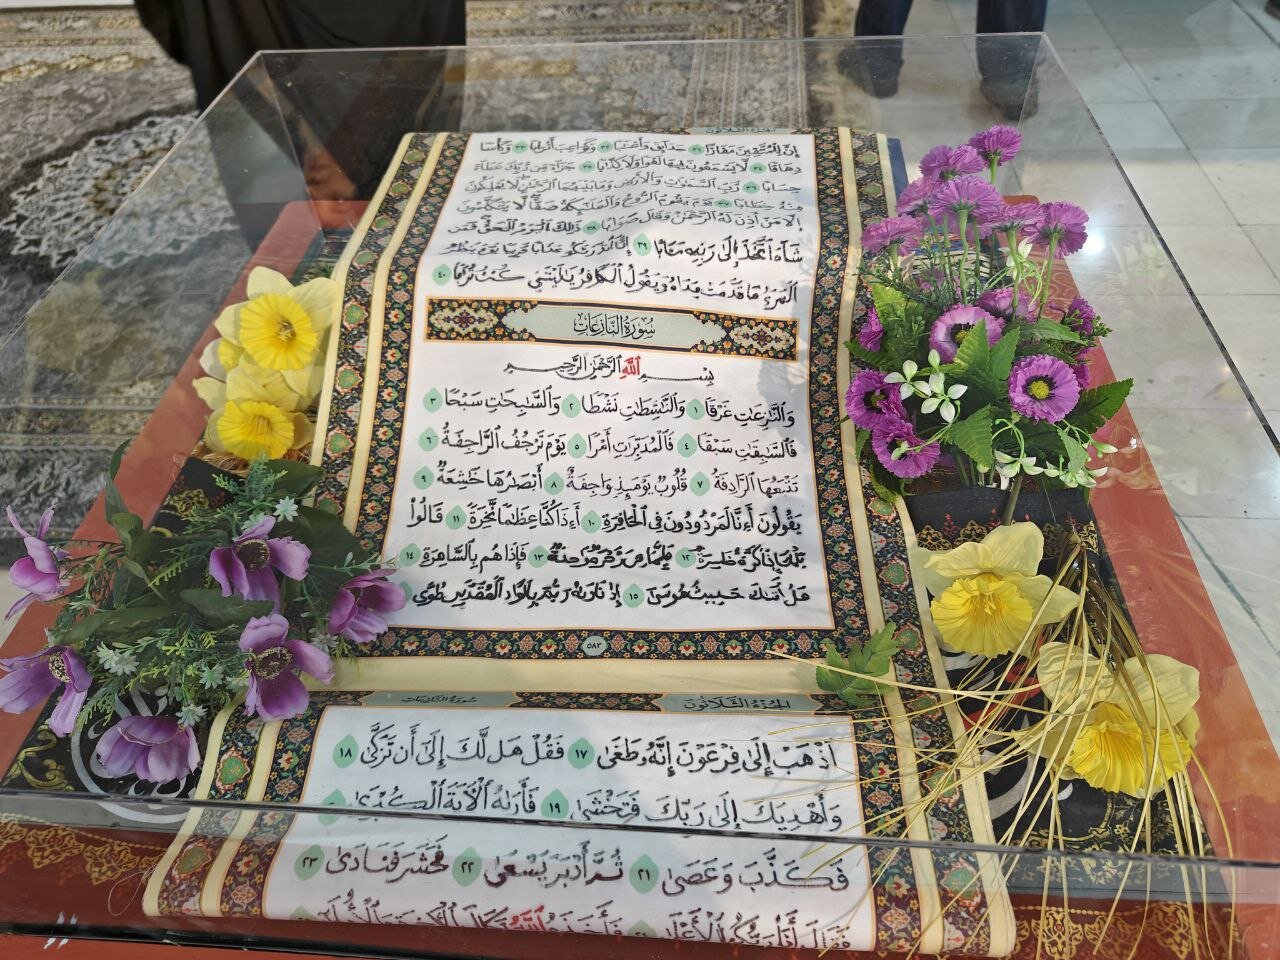 الجزء الثلاثون
إِنَّ لِلْمُتَّقِينَ مَفَازًا ٣١ حَدَائِقَ وَأَعْنَابًا ٣٢ وَكَوَاعِبَ أَتْرَابًا ٣٣ وَكَأْسًا
دِهَاقًا ٣٤ لَّا يَسْمَعُونَ فِيهَا لَغْوًا وَلَا كِذَّابًا ٣٥ جَزَآءً مِّن رَّبِّكَ عَطَآءً
حِسَابًا ٣٦ رَّبِّ ٱلسَّمَٰوَٰتِ وَٱلْأَرْضِ وَمَا بَيْنَهُمَا ٱلرَّحْمَٰنِ لَا يَمْلِكُونَ
مِنْهُ خِطَابًا ٣٧ يَوْمَ يَقُومُ ٱلرُّوحُ وَٱلْمَلَٰٓئِكَةُ صَفًّا لَّا يَتَكَلَّمُونَ
إِلَّا مَنْ أَذِنَ لَهُ ٱلرَّحْمَٰنُ وَقَالَ صَوَابًا ٣٨ ذَٰلِكَ ٱلْيَوْمُ ٱلْحَقُّ فَمَن
شَآءَ ٱتَّخَذَ إِلَىٰ رَبِّهِۦ مَـَٔابًا ٣٩ إِنَّآ أَنذَرْنَٰكُمْ عَذَابًا قَرِيبًا يَوْمَ يَنظُرُ
ٱلْمَرْءُ مَا قَدَّمَتْ يَدَاهُ وَيَقُولُ ٱلْكَافِرُ يَٰلَيْتَنِي كُنتُ تُرَٰبًا ٤٠
سُورَةُ النَّازِعَاتِ
بِسْمِ ٱللَّهِ ٱلرَّحْمَٰنِ ٱلرَّحِيمِ
وَٱلنَّٰزِعَٰتِ غَرْقًا ١ وَٱلنَّٰشِطَٰتِ نَشْطًا ٢ وَٱلسَّٰبِحَٰتِ سَبْحًا ٣
فَٱلسَّٰبِقَٰتِ سَبْقًا ٤ فَٱلْمُدَبِّرَٰتِ أَمْرًا ٥ يَوْمَ تَرْجُفُ ٱلرَّاجِفَةُ ٦
تَتْبَعُهَا ٱلرَّادِفَةُ ٧ قُلُوبٌ يَوْمَئِذٍ وَاجِفَةٌ ٨ أَبْصَٰرُهَا خَٰشِعَةٌ ٩
يَقُولُونَ أَءِنَّا لَمَرْدُودُونَ فِي ٱلْحَافِرَةِ ١٠ أَءِذَا كُنَّا عِظَٰمًا نَّخِرَةً ١١ قَالُوا۟
تِلْكَ إِذًا كَرَّةٌ خَاسِرَةٌ ١٢ فَإِنَّمَا هِيَ زَجْرَةٌ وَٰحِدَةٌ ١٣ فَإِذَا هُم بِٱلسَّاهِرَةِ ١٤
هَلْ أَتَىٰكَ حَدِيثُ مُوسَىٰٓ ١٥ إِذْ نَادَىٰهُ رَبُّهُۥ بِٱلْوَادِ ٱلْمُقَدَّسِ طُوًى
٥٨٣
الجزء الثلاثون
سورة النازعات
ٱذْهَبْ إِلَىٰ فِرْعَوْنَ إِنَّهُۥ طَغَىٰ ١٧ فَقُلْ هَل لَّكَ إِلَىٰٓ أَن تَزَكَّىٰ ١٨
وَأَهْدِيَكَ إِلَىٰ رَبِّكَ فَتَخْشَىٰ ١٩ فَأَرَىٰهُ ٱلْـَٔايَةَ ٱلْكُبْرَىٰ
فَكَذَّبَ وَعَصَىٰ ٢١ ثُمَّ أَدْبَرَ يَسْعَىٰ ٢٢ فَحَشَرَ فَنَادَىٰ ٢٣
فَقَالَ أَنَا۠ رَبُّكُمُ ٱلْأَعْلَىٰ فَأَخَذَهُ ٱللَّهُ نَكَالَ ٱلْـَٔاخِرَةِ وَٱلْأُولَىٰٓ